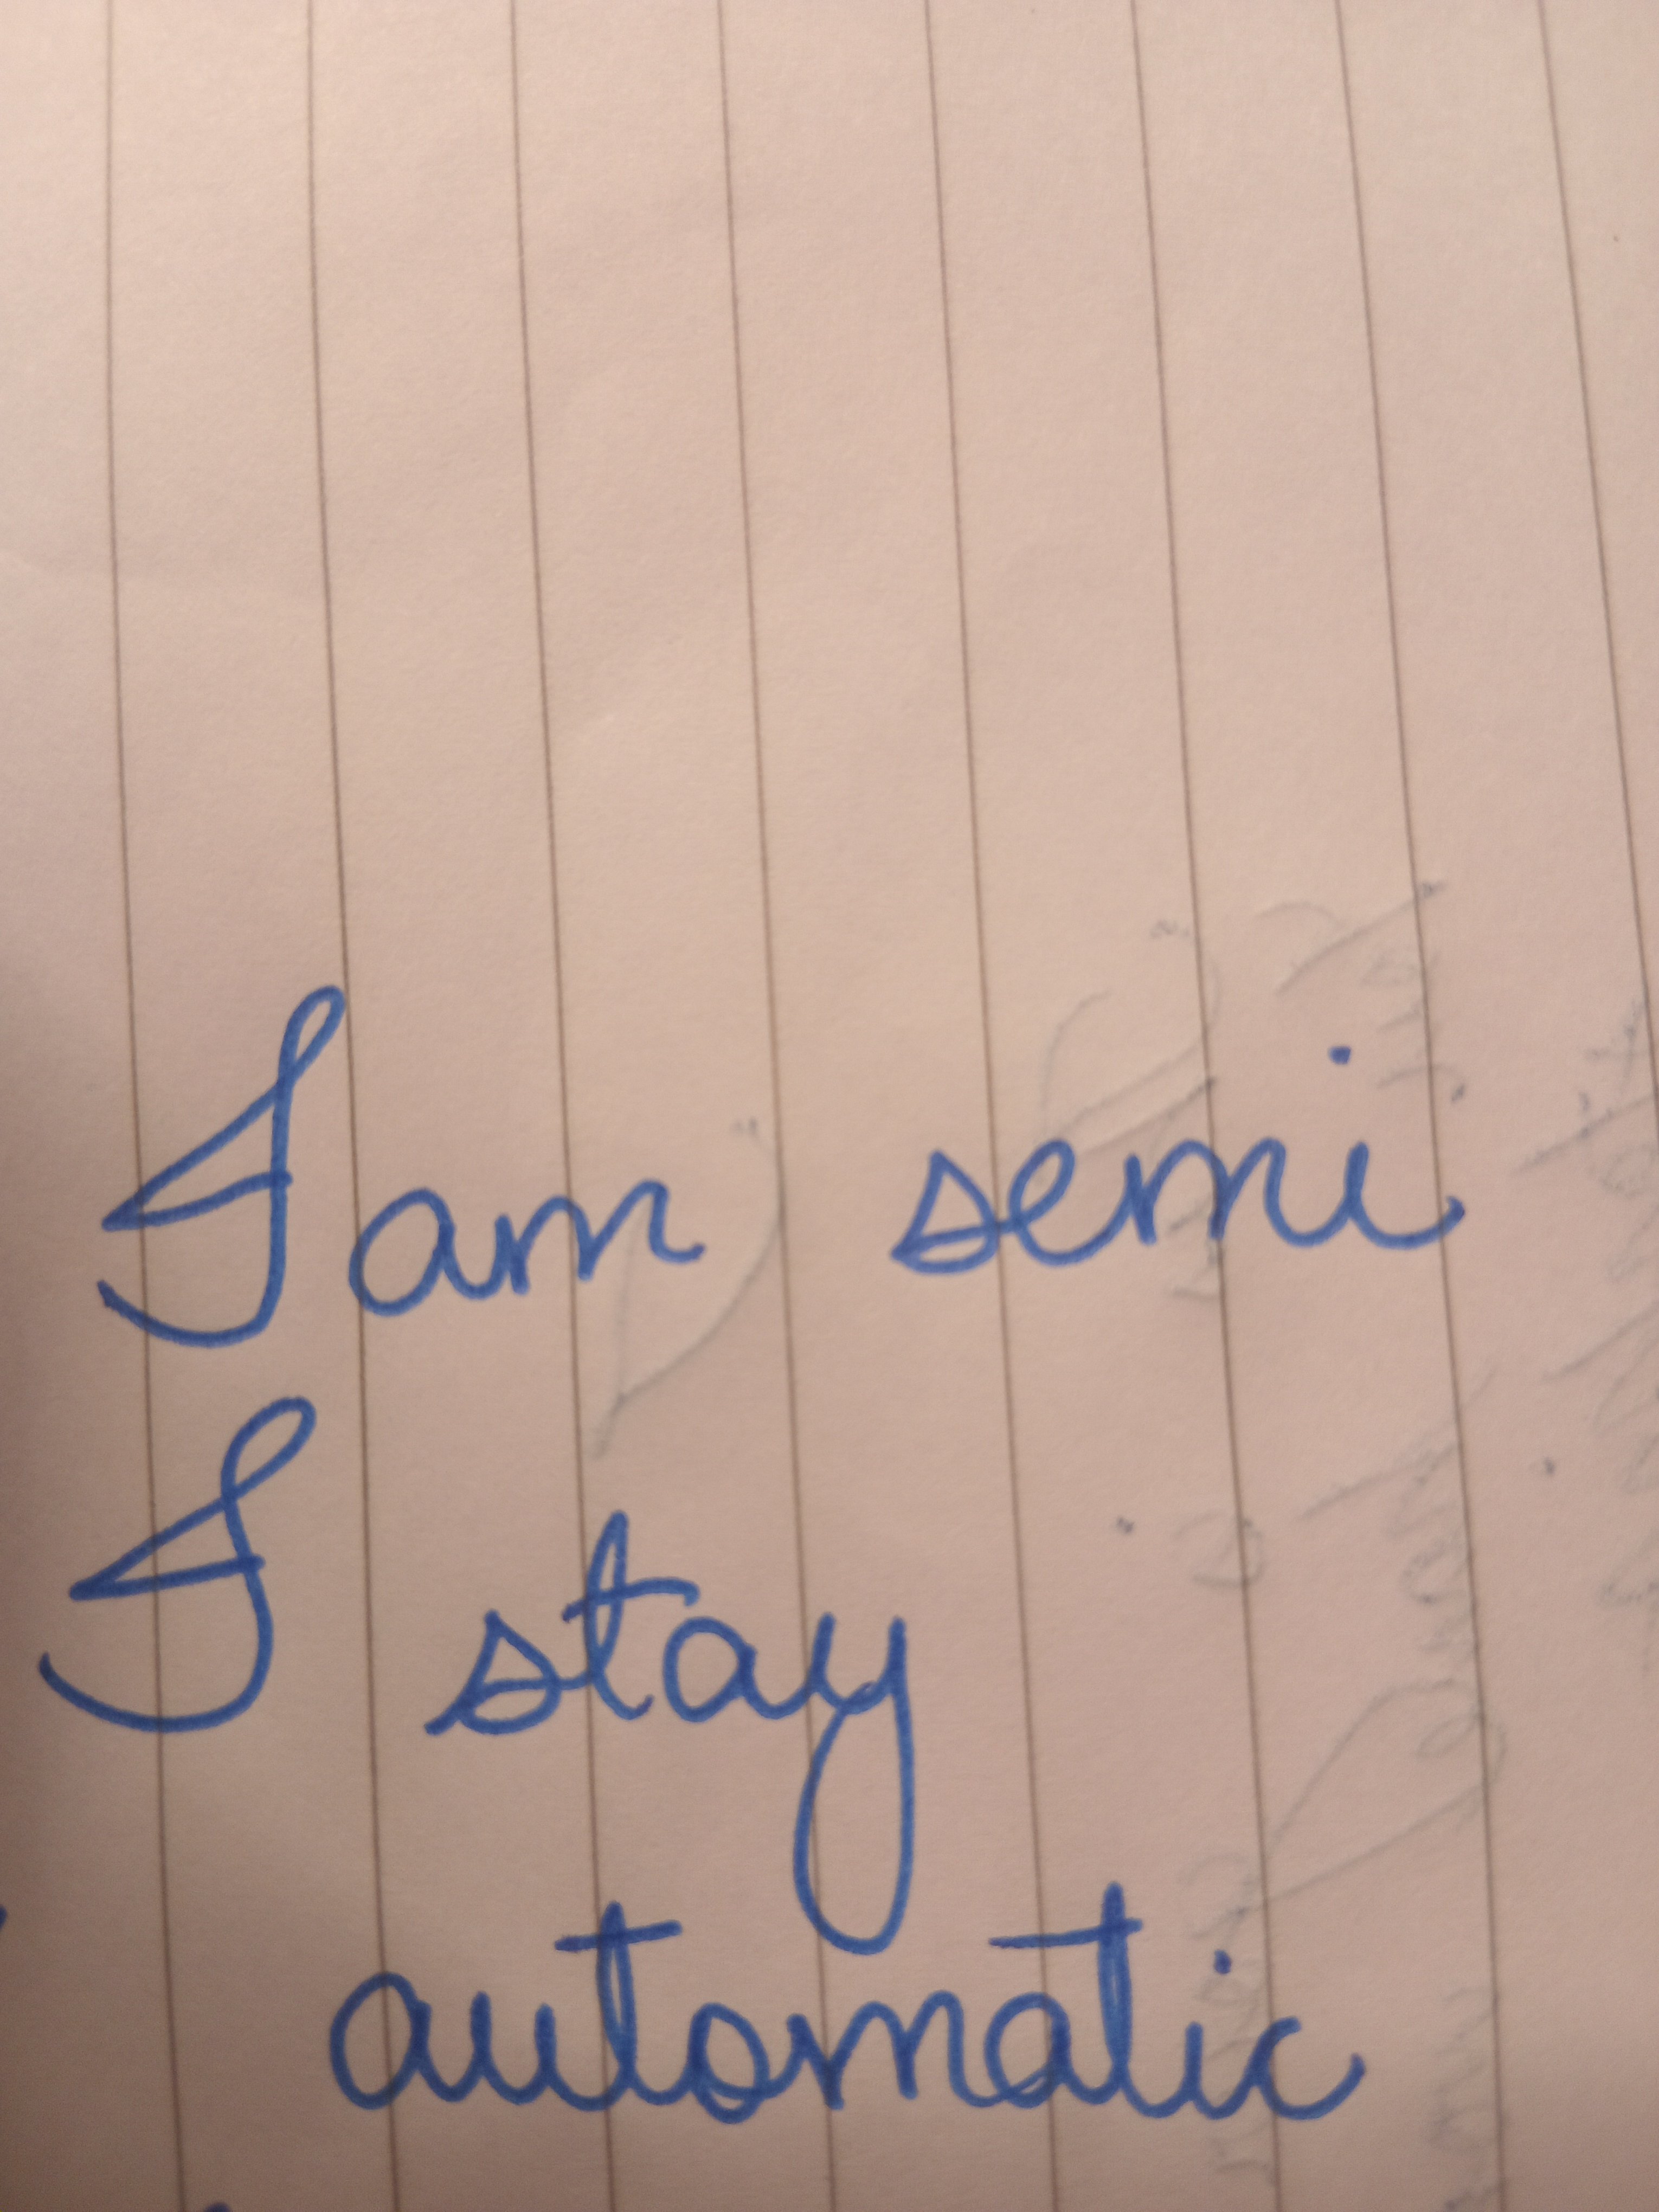 I am semi
I stay
automatic